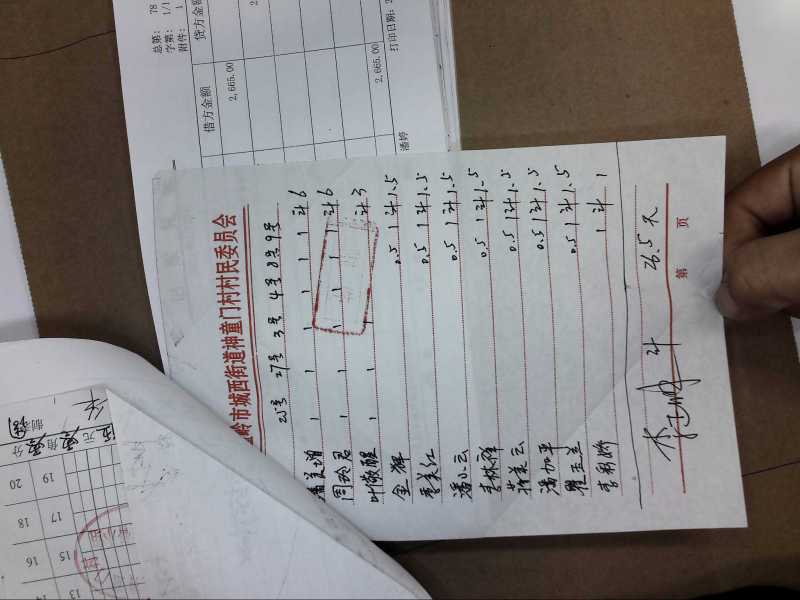 总第: 78
字第: 1/1
附件: 1
借方金额
贷方金额
2,665.00
2,665.00
潘婷
打印日期: 2
岭市城西街道神童门村村民委员会
25号 27号 3号 4号 8号 9号
1 1 1 1 1 1 计6
周玲君 1 1 1 1 1 1 计6
叶敬醒 1 1 1 计3
金辉 0.5 1 计1.5
季美红 0.5 1 计1.5
潘小云 0.5 1 计1.5
李林祥 0.5 1 计1.5
蒋美云 0.5 1 计1.5
潘加平 0.5 1 计1.5
瞿玉兰 0.5 1 计1.5
李利娇 1 计 1
计 26.5天
第 页
元 角 分
20
19
18
17
16
15
14
13